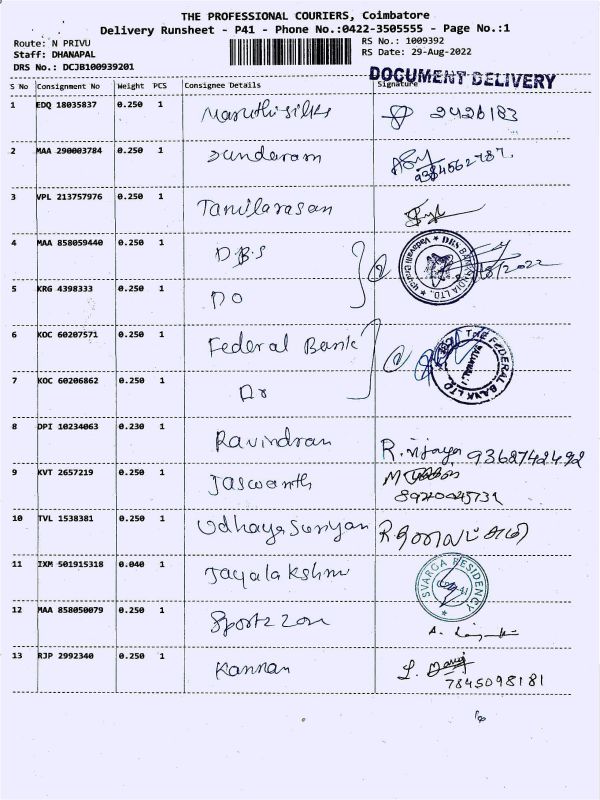 THE PROFESSIONAL COURIERS, Coimbatore
Delivery Runsheet - P41 - Phone No.:0422-3505555 - Page No.:1
Route: N PRIVU
RS No.: 1009392
Staff: DHANAPAL
RS Date: 29-Aug-2022
DRS No.: DCJB100939201
DOCUMENT DELIVERY
S No Consignment No Weight PCS Consignee Details Signature
1 EDQ 18035837 0.250 1 Maruthisilks 2426183
2 MAA 290003784 0.250 1 Sundaram 9384562787
3 VPL 213757976 0.250 1 Tamilarasan
4 MAA 858059440 0.250 1 D.B.S
DBS BANK INDIA LTD.
5 KRG 4398333 0.250 1 DO
6 KOC 60207571 0.250 1 Federal Bank
THE FEDERAL BANK LTD
7 KOC 60206862 0.250 1
8 DPI 10234063 0.230 1 Ravindran R. Vijaya 9362742492
9 KVT 2657219 0.250 1 Jaswanth
10 TVL 1538381 0.250 1 UdhayaSuriyan
11 IXM 501915318 0.040 1 Jayalakshmi SVARGA RESIDENCY
12 MAA 858050079 0.250 1 Sportz Zon
13 RJP 2992340 0.250 1 Kannan
7845098181